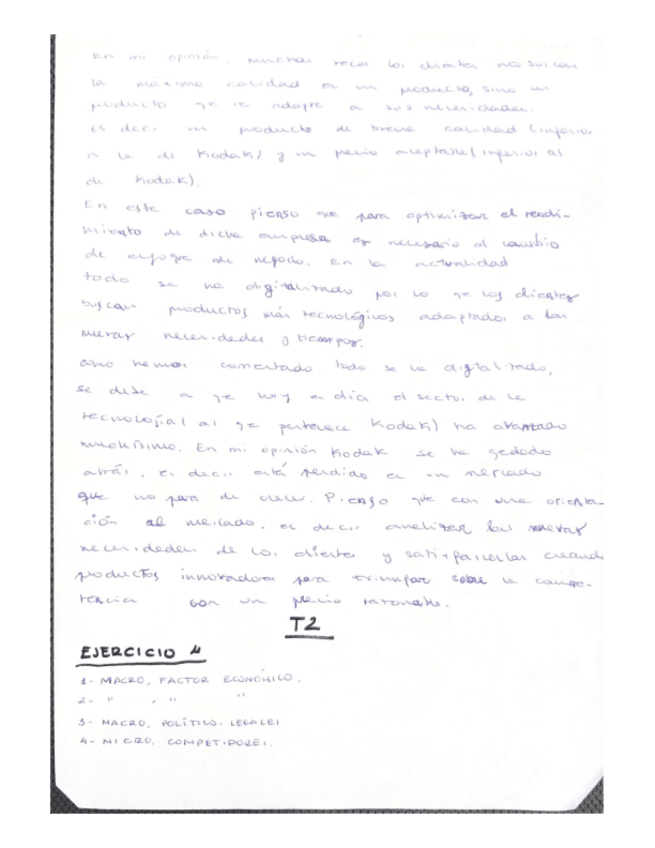 En mi opinión, muchas veces los clientes no buscan
la máxima calidad en un producto, sino un
producto que se adapte a sus necesidades.
Es decir un producto de buena calidad (inferior
a la de Kodak) y un precio aceptable (inferior al
de Kodak).
En este caso pienso que para optimizar el rendi-
miento de dicha empresa es necesario el cambio
de enfoque de negocio. En la actualidad
todo se ha digitalizado por lo que los clientes
buscan productos más tecnológicos adaptados a las
nuevas necesidades y tiempos.
como hemos comentado todo se ha digitalizado,
se debe a que hoy en día el sector de la
tecnología (al que pertenece Kodak) ha avanzado
muchísimo. En mi opinión Kodak se ha quedado
atrás, es decir está perdido en un mercado
que no para de crecer. Pienso que con una orienta-
ción al mercado, es decir analizar las nuevas
necesidades de los clientes y satisfacerlas creando
productos innovadores para triunfar sobre la compe-
tencia con un precio razonable.
T2
EJERCICIO 4
1- MACRO, FACTOR ECONÓMICO.
2- " , " "
3- MACRO, POLÍTICO-LEGALES
4- MICRO, COMPETIDORES.